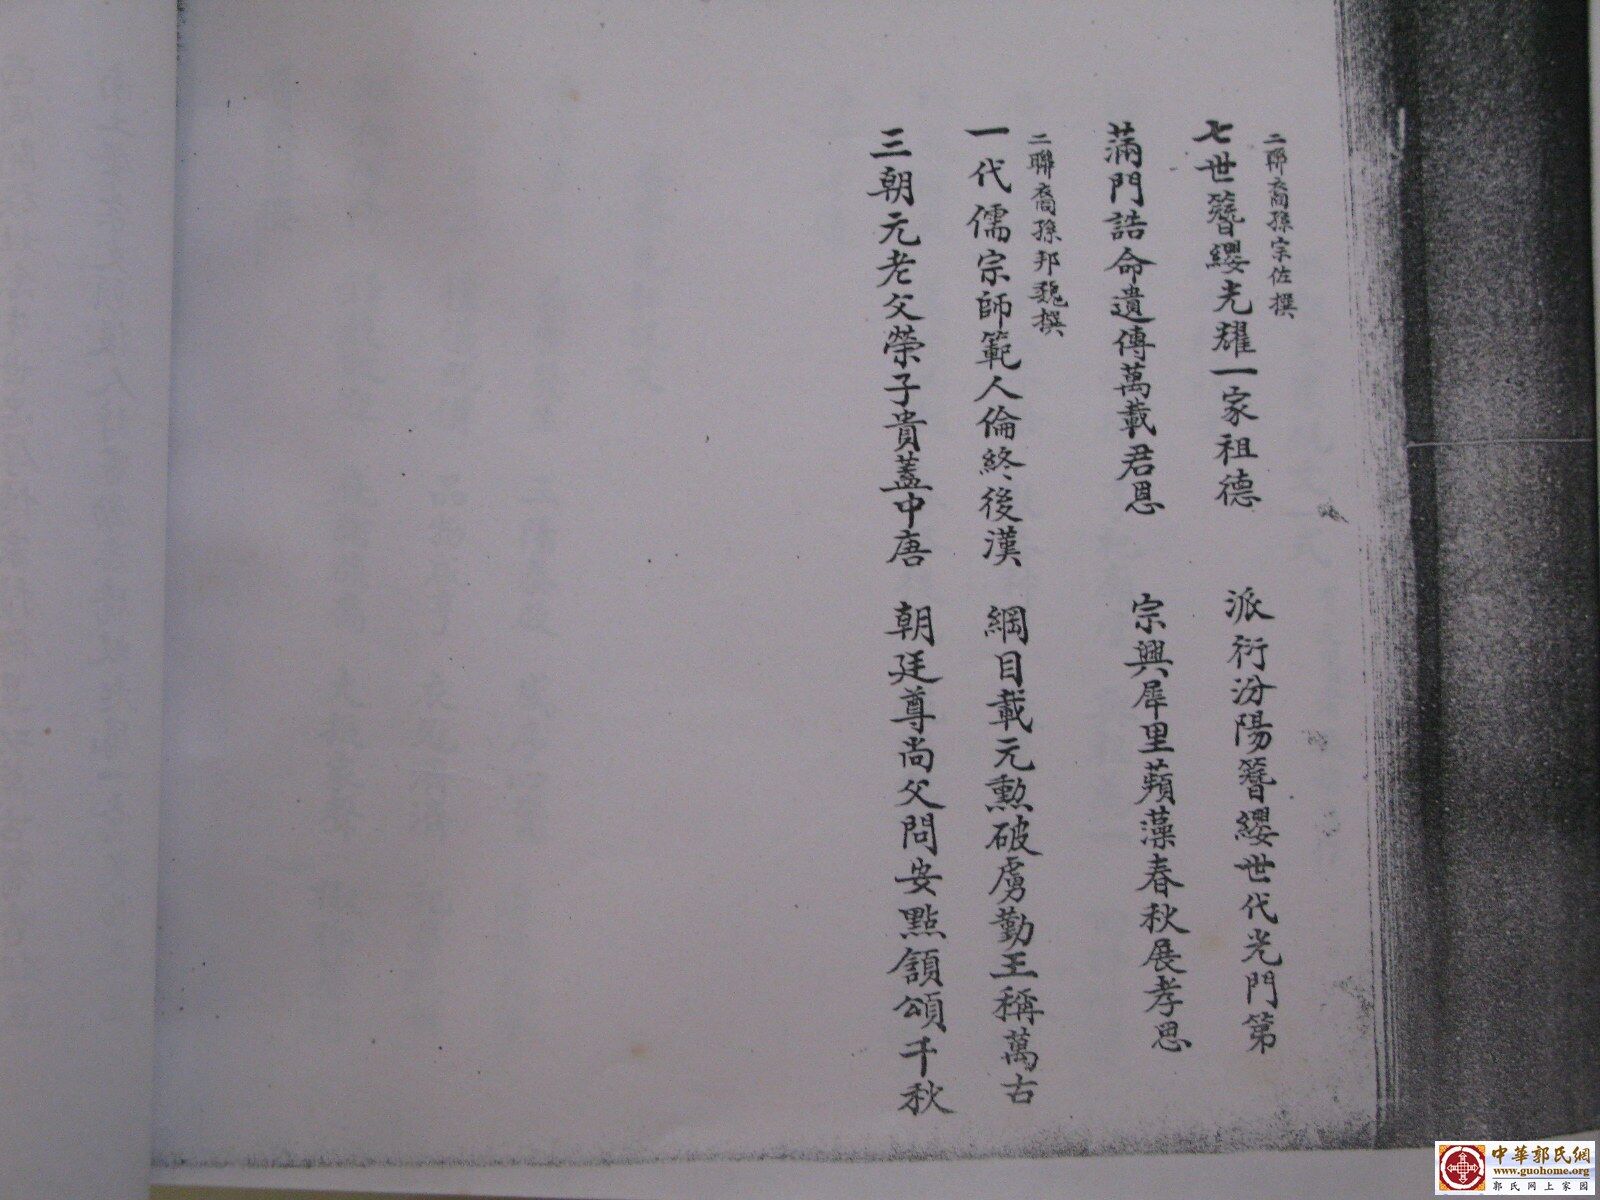 二聯裔孫宗佐撰
七世簪纓光耀一家祖德 派衍汾陽簪纓世代光門第
滿門誥命遺傳萬載君恩 宗興犀里蘋藻春秋展孝思
二聯裔孫邦魏撰
一代儒宗師範人倫終後漢 綱目載元勲破虜勤王稱萬古
三朝元老父榮子貴蓋中唐 朝廷尊尚父問安點頷頌千秋
中華郭氏網
www.guohome.org
郭氏网上家园